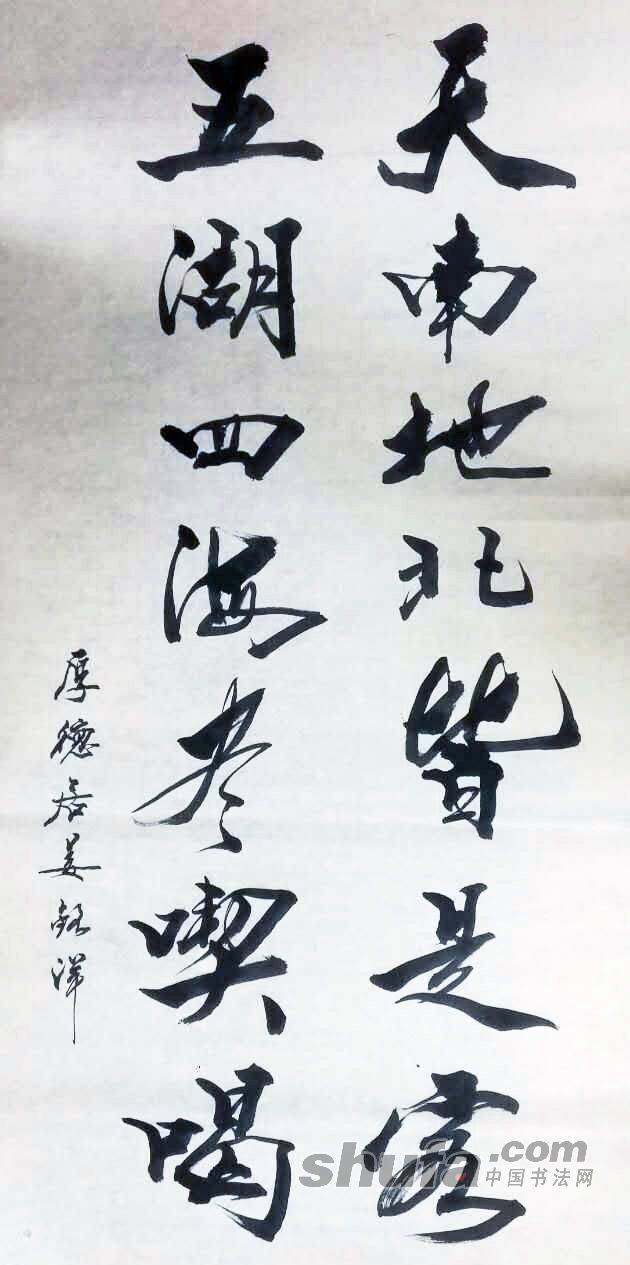 天南地北皆是
五湖四海尽喫喝
厚德居姜洋
shufa.com
中国书法网